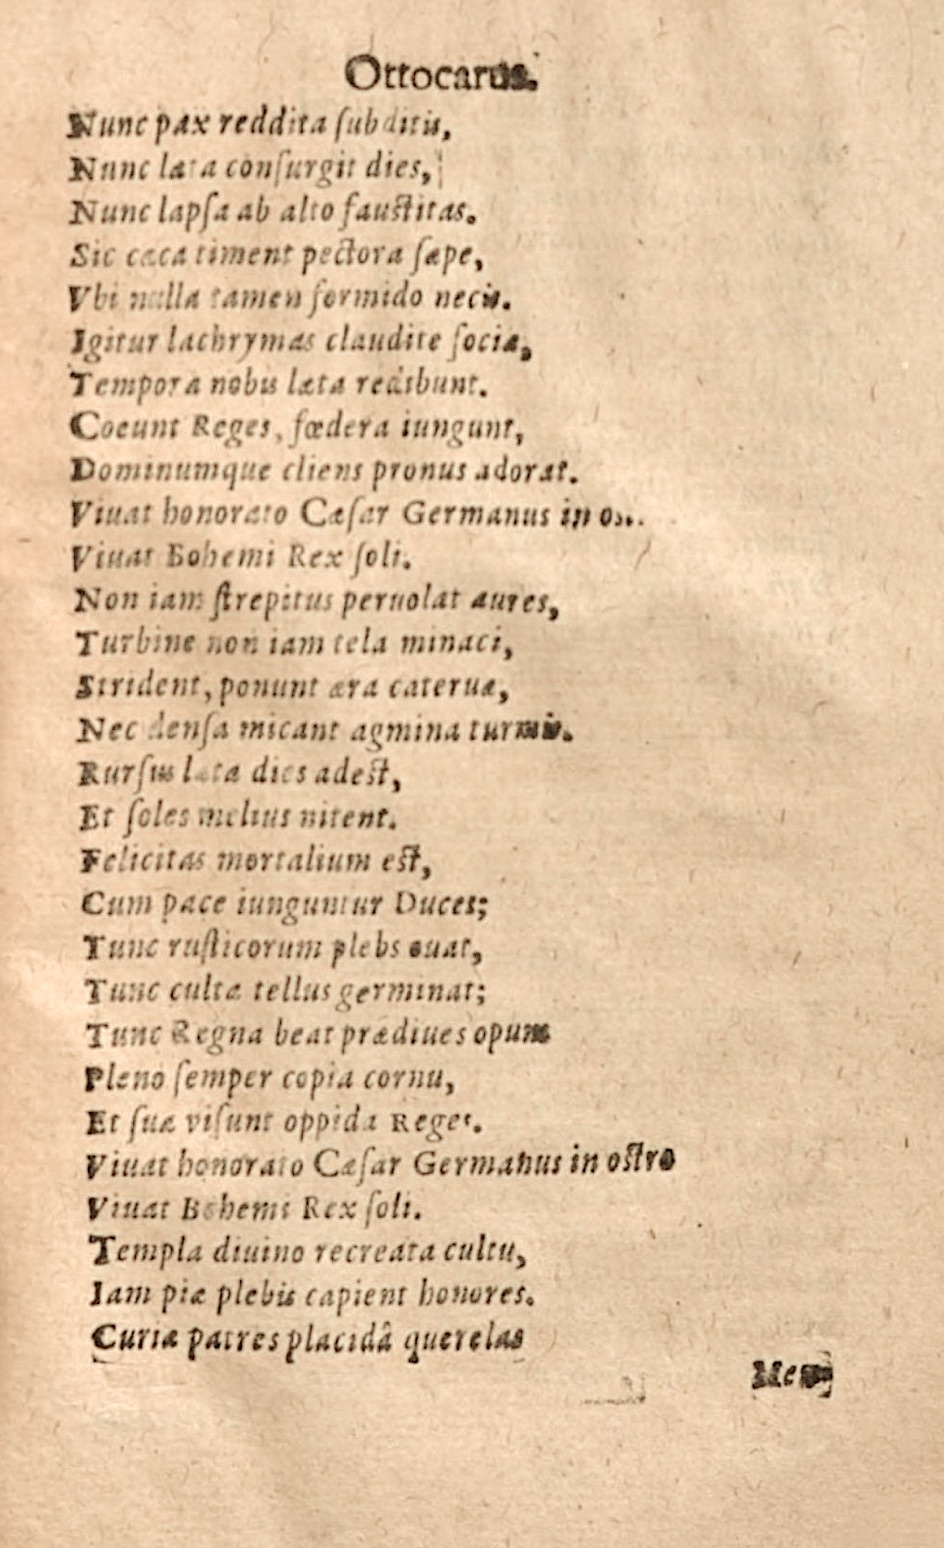 Ottocarus.
Nunc pax reddita ſubditis,
Nunc læta conſurgit dies,
Nunc lapſa ab alto fauſtitas.
Sic cæca timent pectora ſæpe,
Vbi nulla tamen formido necis.
Igitur lachrymas claudite ſociæ,
Tempora nobis læta redibunt.
Coeunt Reges, fœdera iungunt,
Dominumque cliens pronus adorat.
Viuat honorato Cæſar Germanus in
Viuat Bohemi Rex ſoli.
Non iam ſtrepitus peruolat aures,
Turbine non iam tela minaci,
Strident, ponunt æra cateruæ,
Nec denſa micant agmina turmis.
Rurſus læta dies adeſt,
Et ſoles melius nitent.
Felicitas mortalium eſt,
Cum pace iunguntur Duces;
Tunc ruſticorum plebs ouat,
Tunc culta tellus germinat;
Tunc Regna beat prædiues opum
Pleno ſemper copia cornu,
Et ſua viſunt oppida Reges.
Viuat honorato Cæſar Germanus in oſtro
Viuat Bohemi Rex ſoli.
Templa diuino recreata cultu,
Iam piæ plebis capient honores.
Curiæ patres placidâ querelas